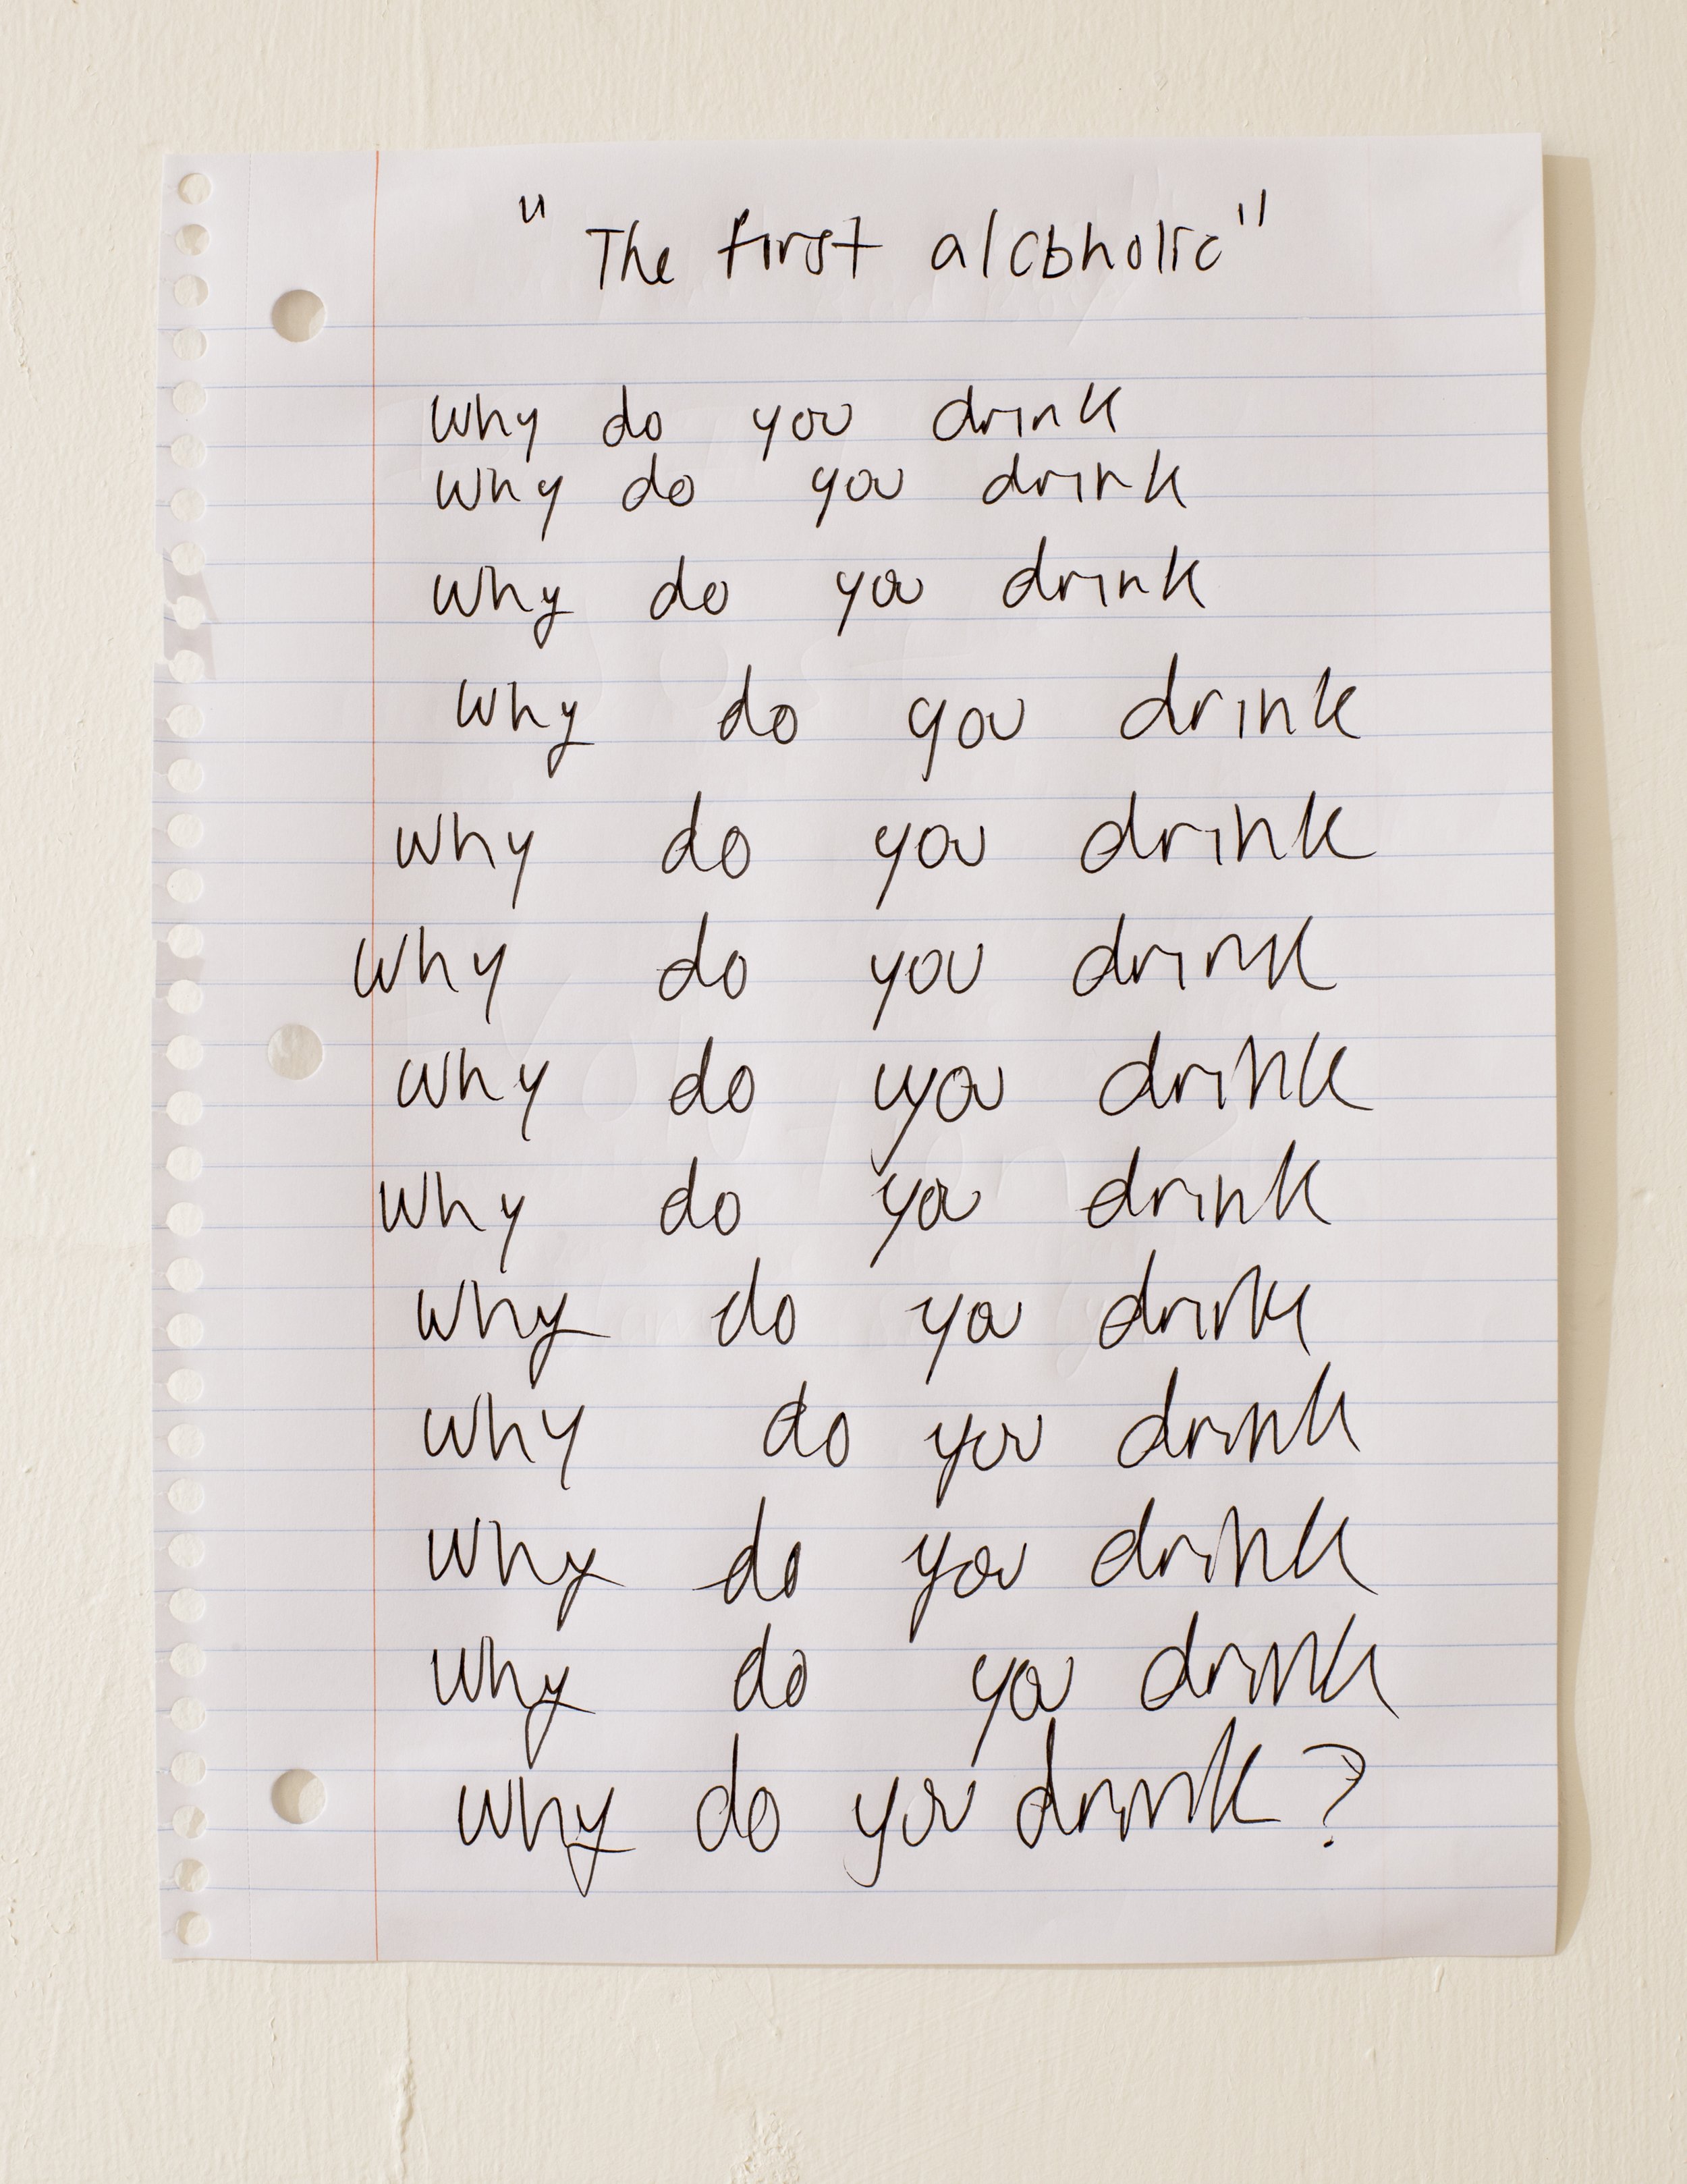 "The first alcoholic"
Why do you drink
Why do you drink
Why do you drink
Why do you drink
Why do you drink
Why do you drink
Why do you drink
Why do you drink
Why do you drink
Why do you drink
Why do you drink
Why do you drink
Why do you drink?